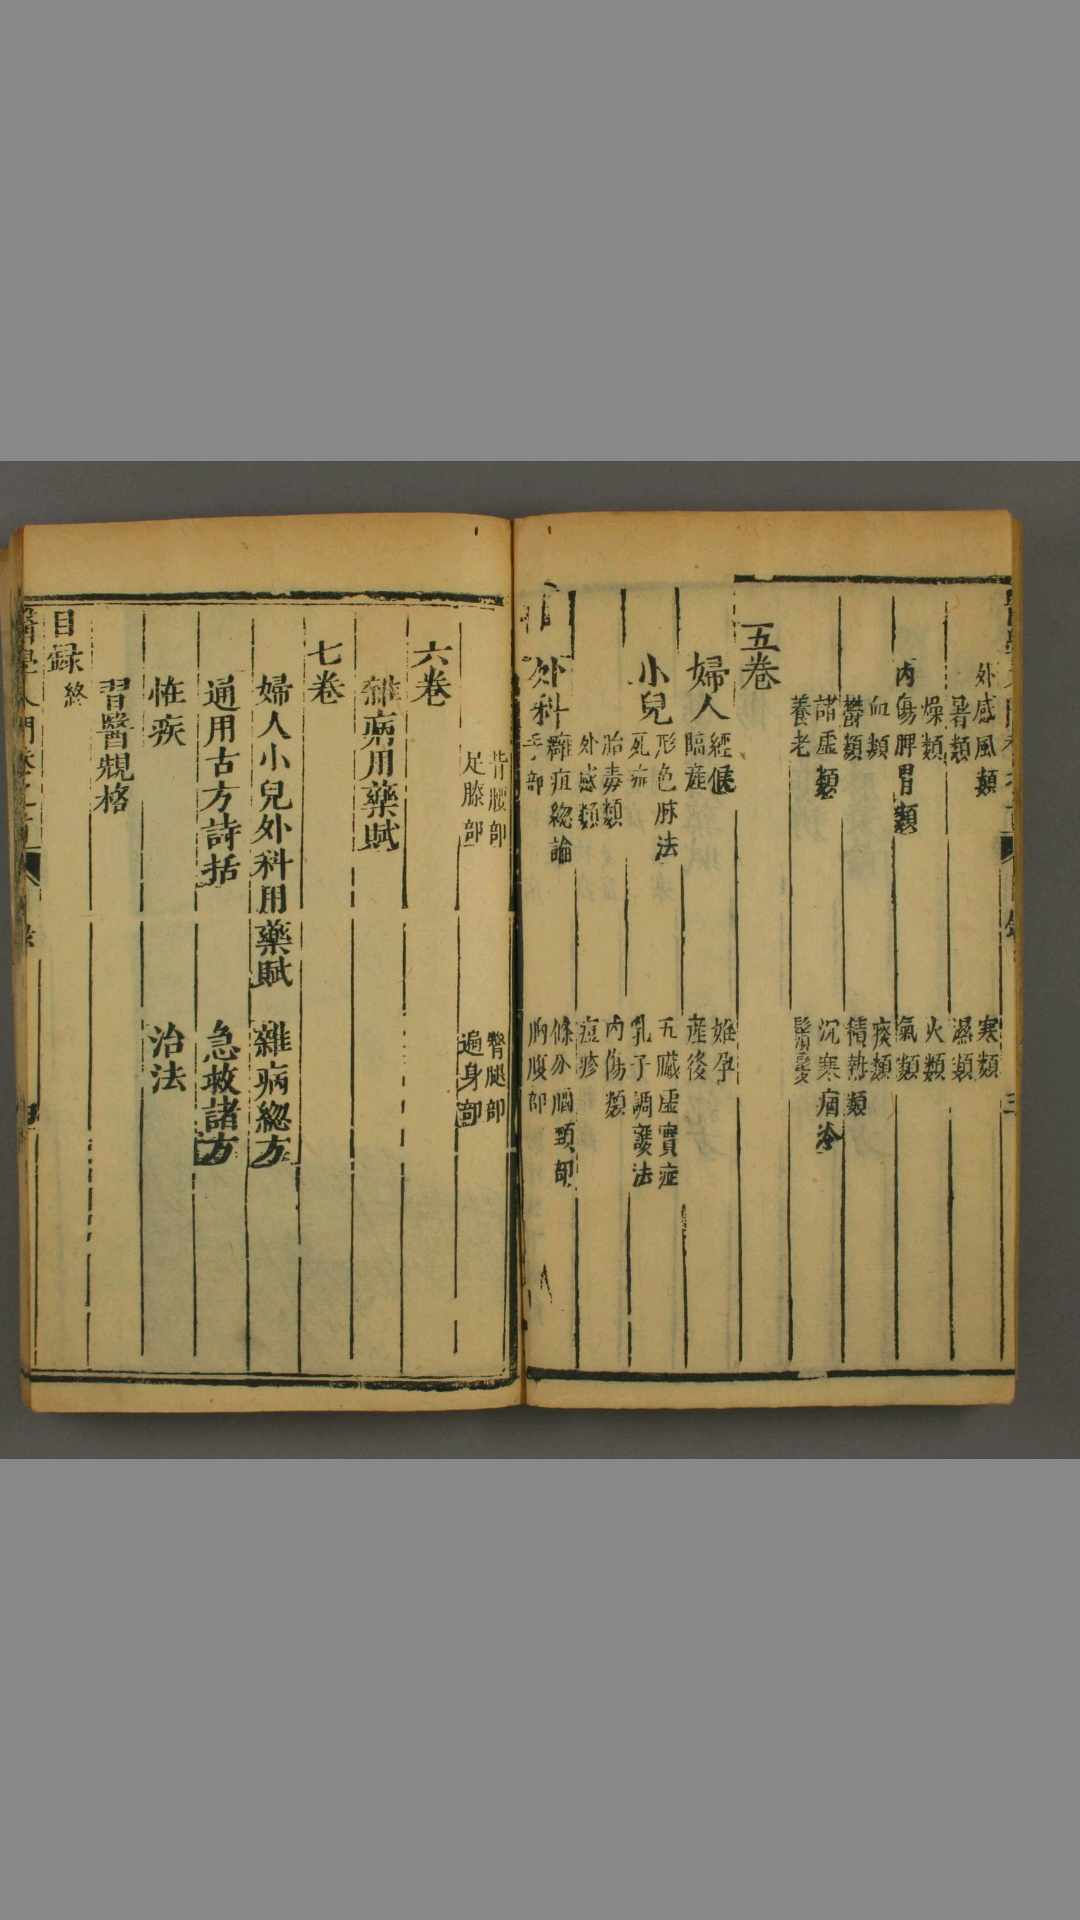 外感風類 寒類
暑類 濕類
燥類 火類
内傷脾胃類 氣類
血類 痰類
鬱類 積熱類
諸虛類 沉寒痼冷
養老
五卷
婦人 經候 姙孕
臨産 産後
小兒 形色脉法 五臟虛實症
死症 乳子調護法
胎毒類 内傷類
外感類 痘疹
外科 癰疽總論 條分腦頸部
手部 胸腹部
背腰部 臀腿部
足膝部 遍身部
六卷
雜病用藥賦
七卷
婦人小兒外科用藥賦 雜病總方
通用古方詩括 急救諸方
恠疾 治法
習醫規格
目録終
醫學入門卷之首